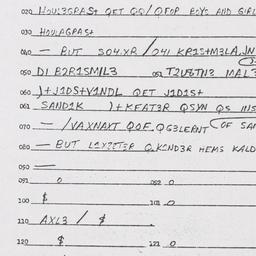 020 HOUL3GPAS+ QET QQ/QFOP BOYS AND GIRL
030 HOULAGPAS+
040 - BUT SO4.XR / 041 KRIS+M3LA.JN
050 DI B2R1SMIL3 051 T2USTN3 MAL3
060 )+J1DS+V1NDL QET J1D1S+
061 SAND1K )+KFAT3R QSYN QS INS
070 - /VAXNAXT QOF.QG3LEPNT (OF SAN
080 - BUT L1X2ET3R Q.K1ND3R HEMS KALD
090 -
091 0 092 0
100 $ 101 0
110 AXL3 / $
120 $ 121 0